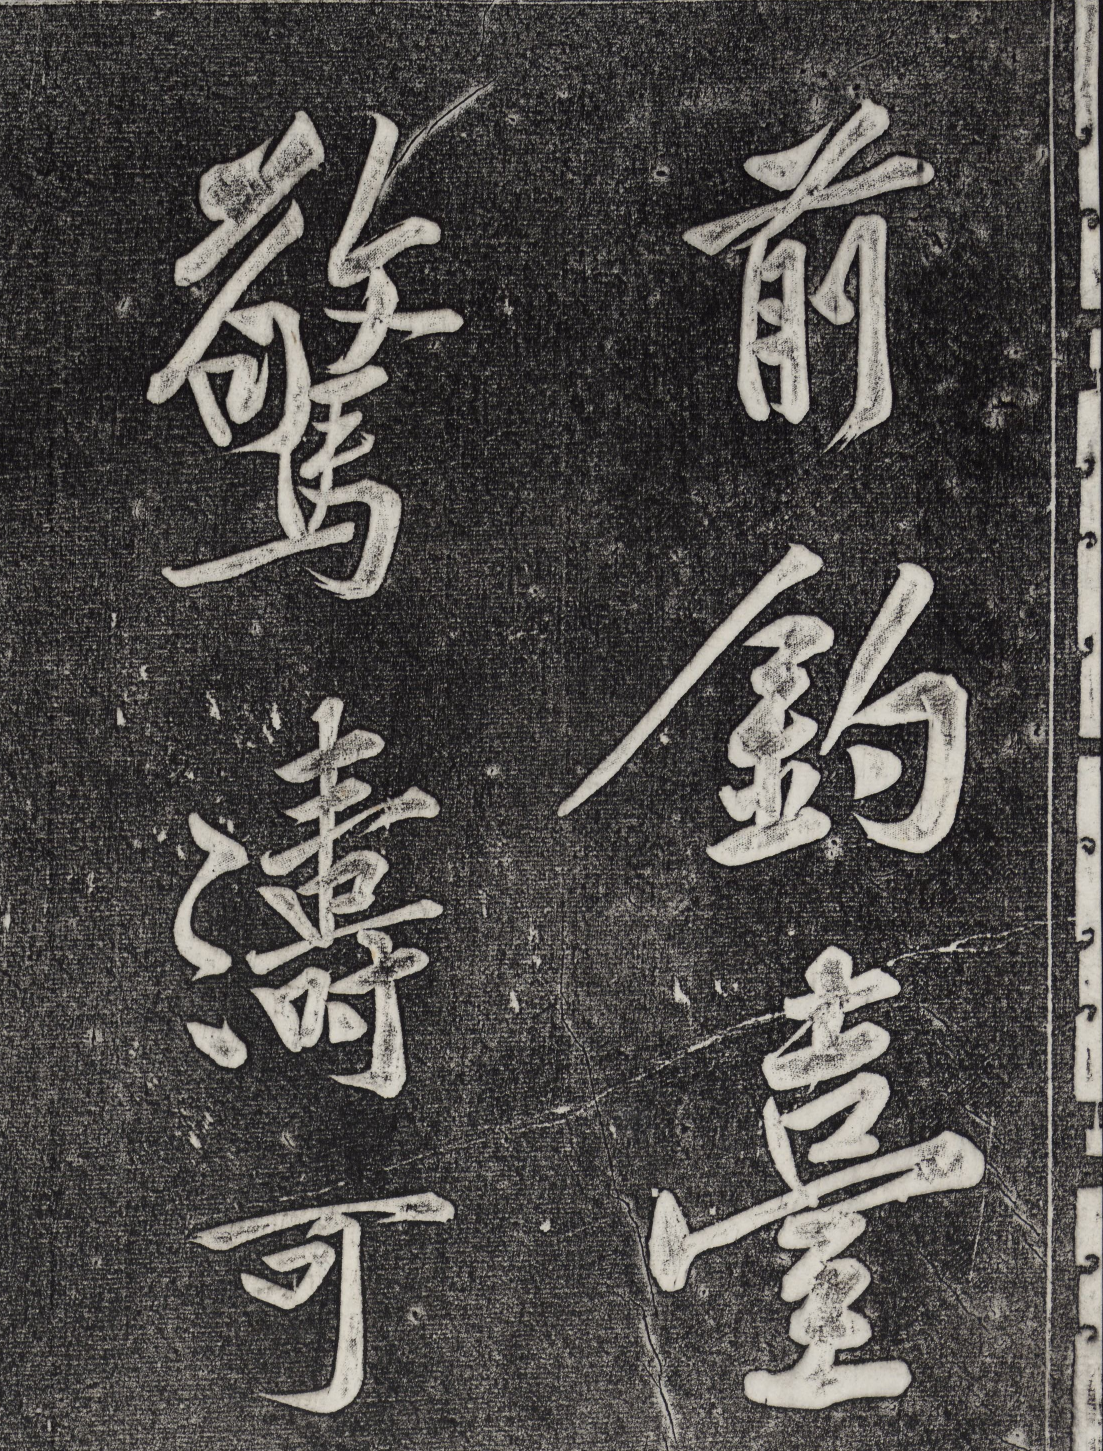 前釣臺
驚濤可